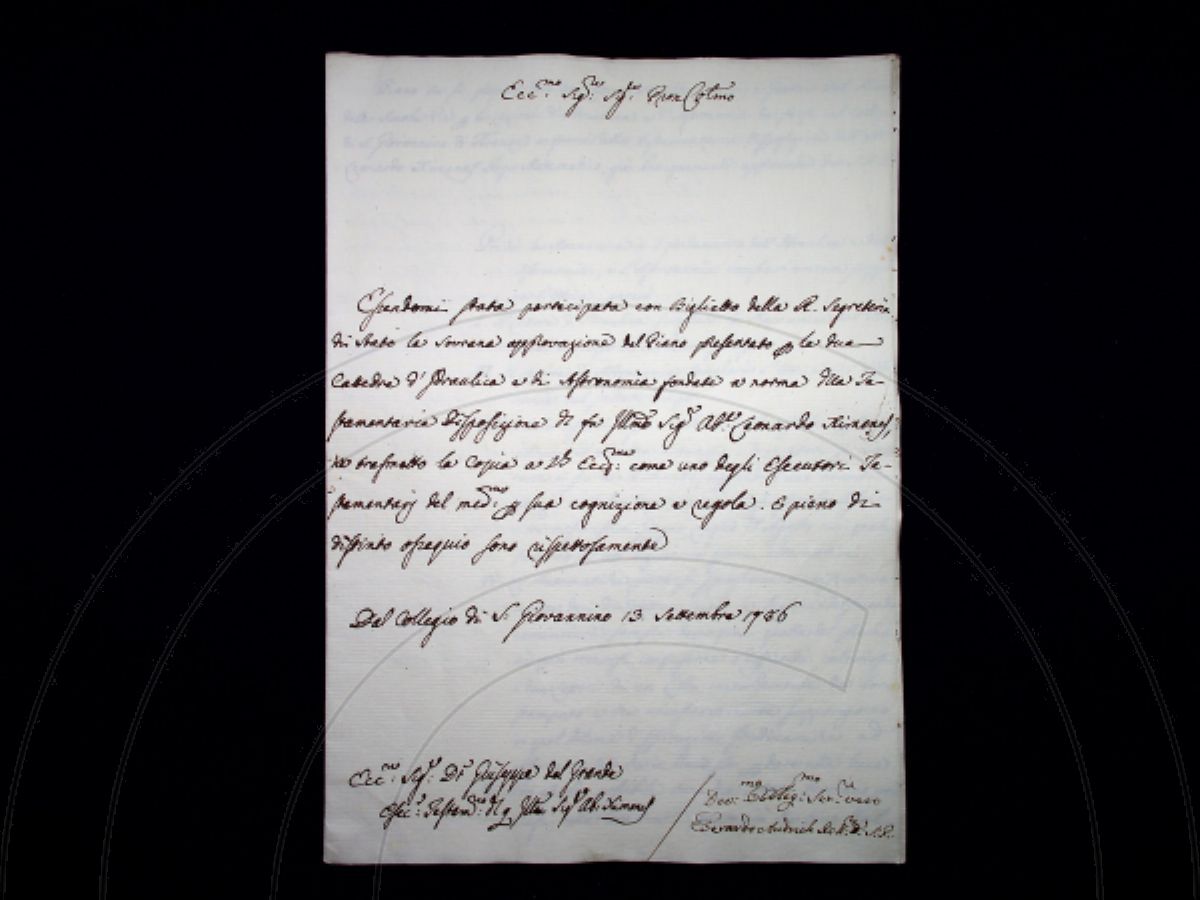 Ecc.mo Sig.re Sig.re Pron Colmo
Essendomi stata participata con Biglietto della R. Segreteria
di Stato la Sovrana approvazione del Piano presentato per le due
Cattedre d'Idraulica e di Astronomia fondate a norma della Te-
stamentaria Disposizione di fu Illmo Sig.r Ab.e Leonardo Ximenes,
ne trasmetto la Copia a Vs. Ecc.ma come uno degli Esecutori Te-
stamentarj del med.mo per sua cognizione e regola. E pieno di
distinto ossequio sono rispettosamente
Dal Collegio di S. Giovannino 13 Settembre 1786
Ecc.mo Sig.r D.r Giuseppe del Grande
Esec.e Testam.rio del q. Illmo Sig.r Ab. Ximenes
Dev.mo Obblig.mo Ser.e vero